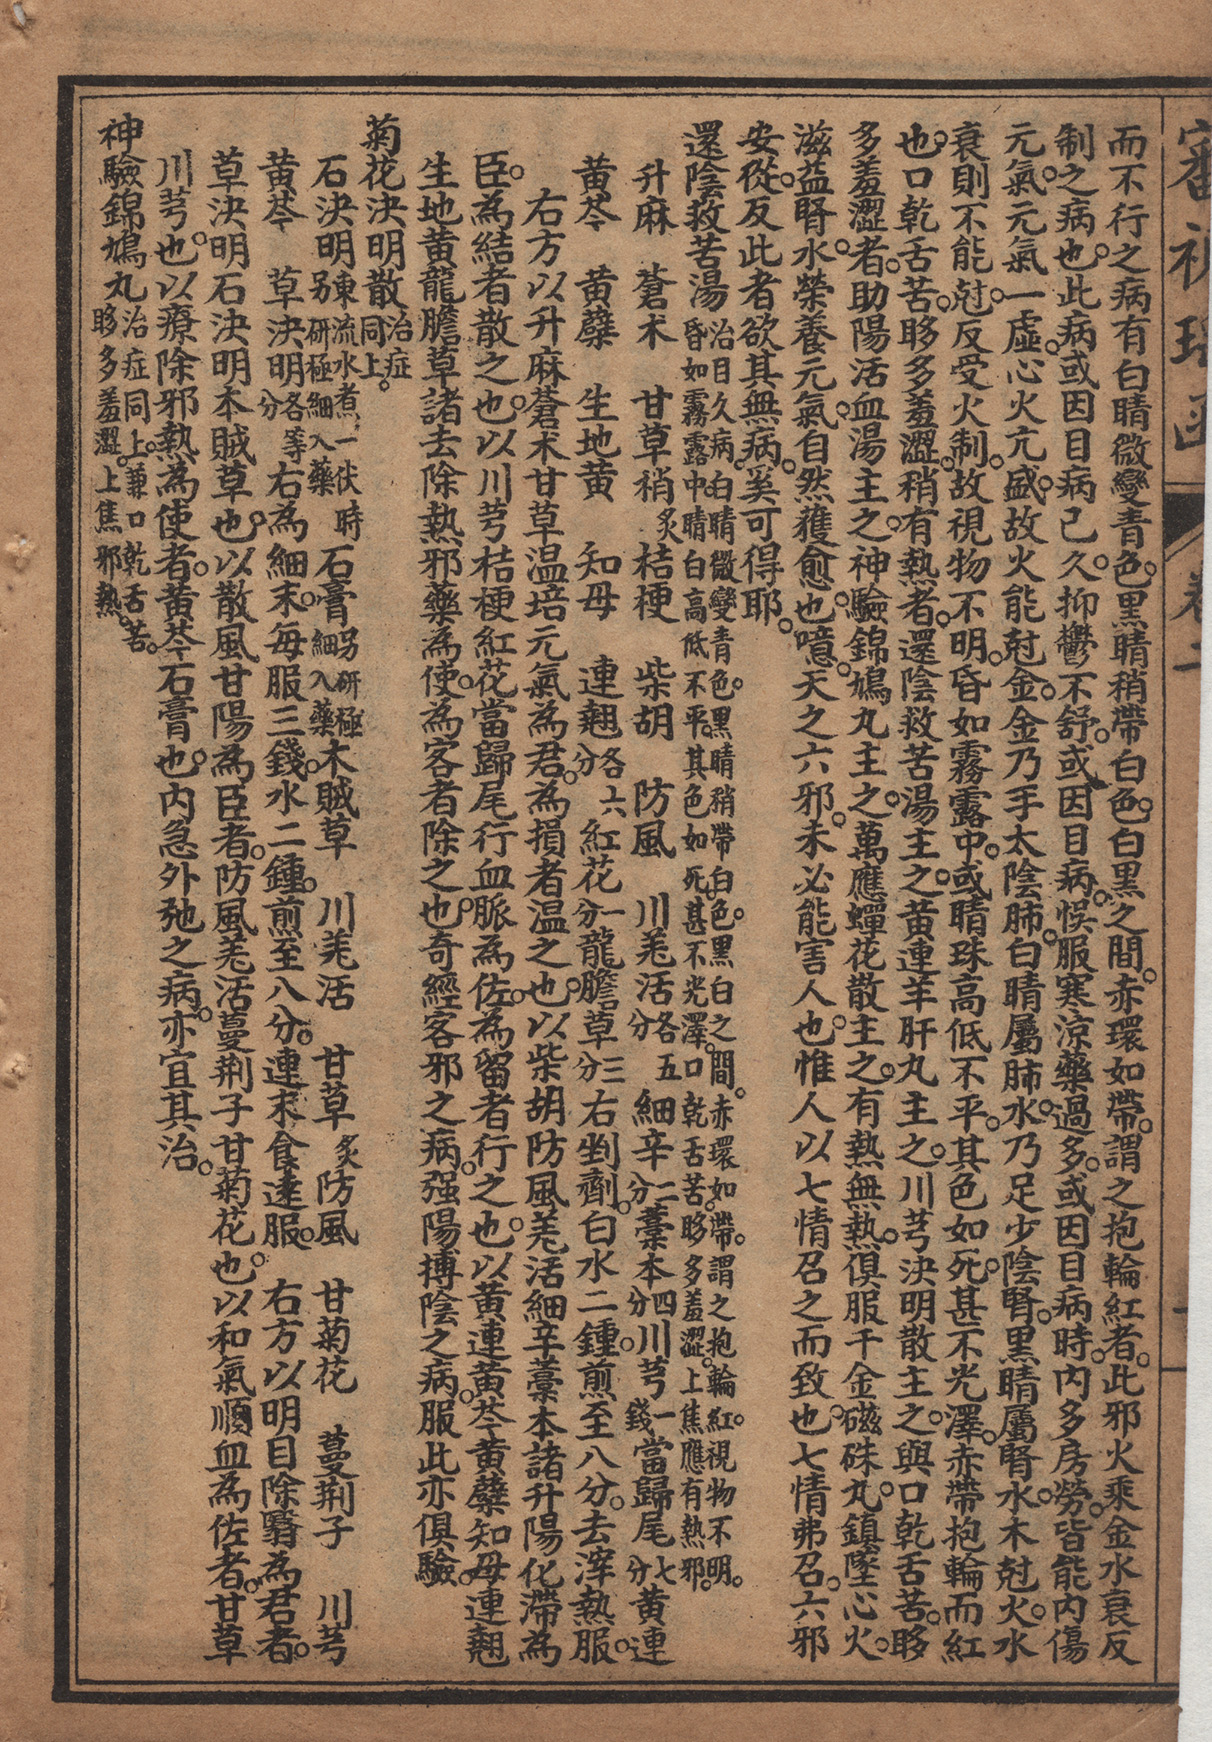 審視瑤函 卷二
而不行之病有白睛微變青色。黑睛稍帶白色。白黑之間。赤環如帶。謂之抱輪紅者。此邪火乘金水衰反
制之病也。此病或因目病已久。抑鬱不舒。或因目病。悞服寒涼藥過多。或因目病時。內多房勞。皆能內傷
元氣。元氣一虛。心火亢盛。故火能尅金。金乃手太陰肺。白睛屬肺。水乃足少陰腎。黑睛屬腎。水木尅火。水
衰則不能尅。反受火制。故視物不明。昏如霧露中。或睛珠高低不平。其色如死。甚不光澤。赤帶抱輪而紅
也。口乾舌苦。眵多羞澀。稍有熱者。還陰救苦湯主之。黃連羊肝丸主之。川芎決明散主之。與口乾舌苦。眵
多羞澀者。助陽活血湯主之。神驗錦鳩丸主之。萬應蟬花散主之。有熱無熱。俱服千金磁硃丸。鎮墜心火。
滋益腎水。榮養元氣。自然獲愈也。噫。天之六邪。未必能害人也。惟人以七情召之而致也。七情弗召。六邪
安從。反此者欲其無病。奚可得耶。
還陰救苦湯 治目久病。白睛微變青色。黑睛稍帶白色。黑白之間。赤環如帶。謂之抱輪紅。視物不明。
昏如霧露中。睛白高低不平。其色如死。甚不光澤。口乾舌苦。眵多羞澀。上焦應有熱邪。
升麻 蒼朮 甘草稍炙 桔梗 柴胡 防風 川羌活各五分 細辛二分 藁本四分 川芎一錢 當歸尾七分 黃連
黃芩 黃蘗 生地黃 知母 連翹各六分 紅花一分 龍膽草三分 右剉劑。白水二鍾。煎至八分。去滓熱服。
右方以升麻蒼朮甘草溫培元氣為君。為損者溫之也。以柴胡防風羌活細辛藁本諸升陽化滯為
臣。為結者散之也。以川芎桔梗紅花當歸尾行血脈為佐。為留者行之也。以黃連黃芩黃蘗知母連翹
生地黃龍膽草諸去除熱邪藥為使。為客者除之也。奇經客邪之病。强陽摶陰之病。服此亦俱驗。
菊花決明散 治症同上。
石決明東流水煮一伏時另研極細入藥 石膏另研極細入藥 木賊草 川羌活 甘草炙 防風 甘菊花 蔓荆子 川芎
黃芩 草決明各等分 右為細末。每服三錢。水二鍾。煎至八分。連末食遠服。 右方以明目除翳為君者。
草決明石決明木賊草也。以散風甘陽為臣者。防風羌活蔓荆子甘菊花也。以和氣順血為佐者。甘草
川芎也。以療除邪熱為使者。黃芩石膏也。內急外弛之病。亦宜其治。
神驗錦鳩丸 治症同上。兼口乾舌苦。
眵多羞澀。上焦邪熱。